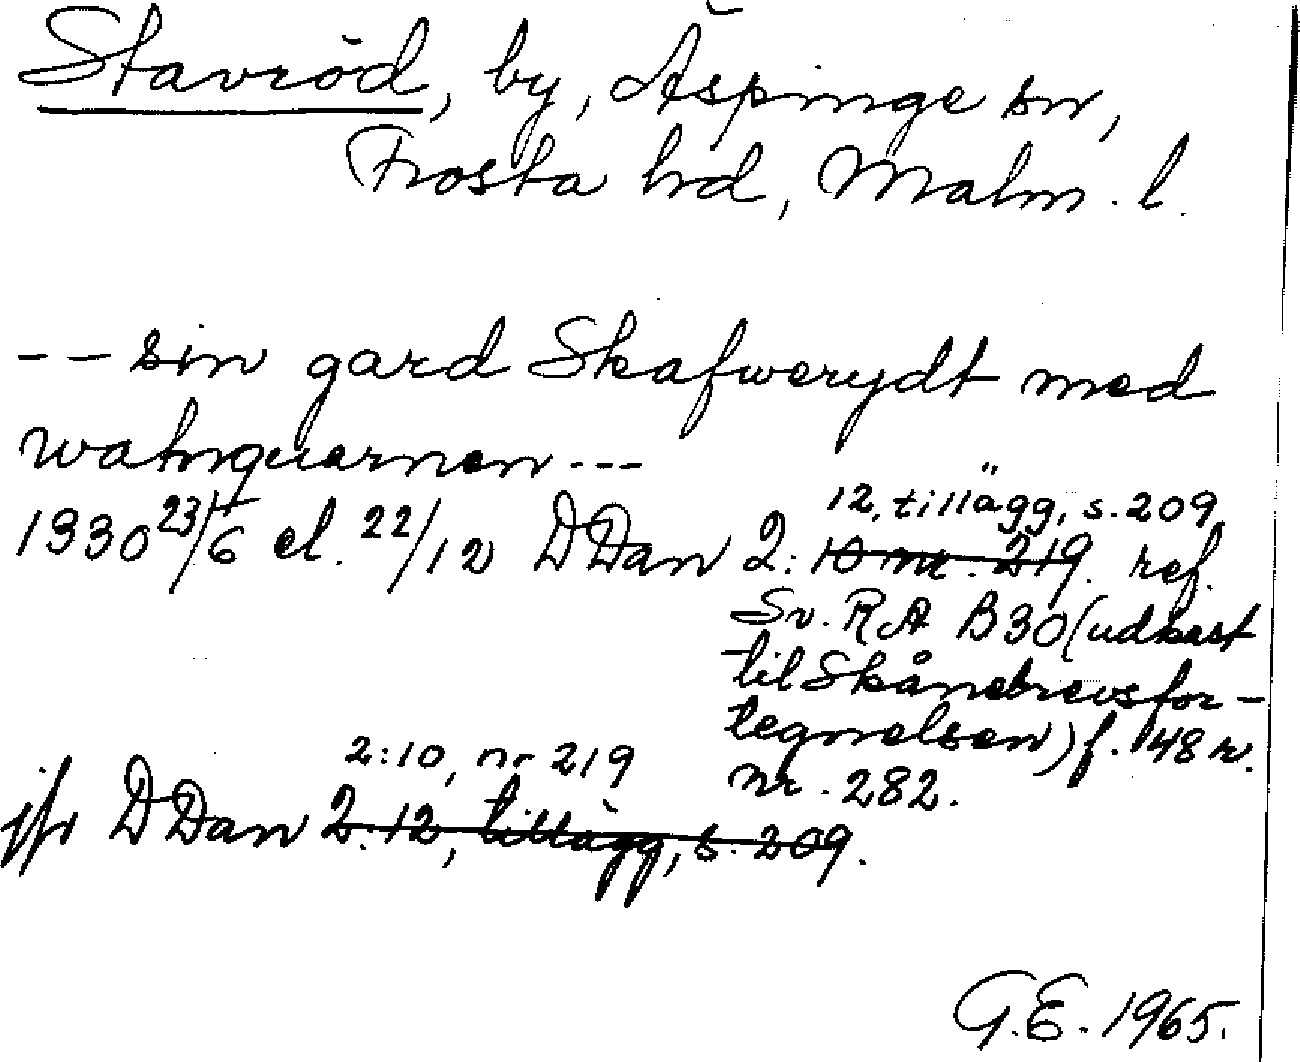 Stavröd, by, Äspinge sn,
Frosta hrd, Malm. l.
-- sin gard Skafwerydt med
watnquernen ---
12, tillägg, s. 209
1330 23/6 el. 22/12 DDan 2: 10 nr. 219. ref.
Sv. RA B30 (udkast
til Skånebrevsfor-
tegnelsen) f. 148 r.
nr. 282.
2:10, nr 219
jfr DDan 2:12, tillägg, s. 209.
G.E. 1965.